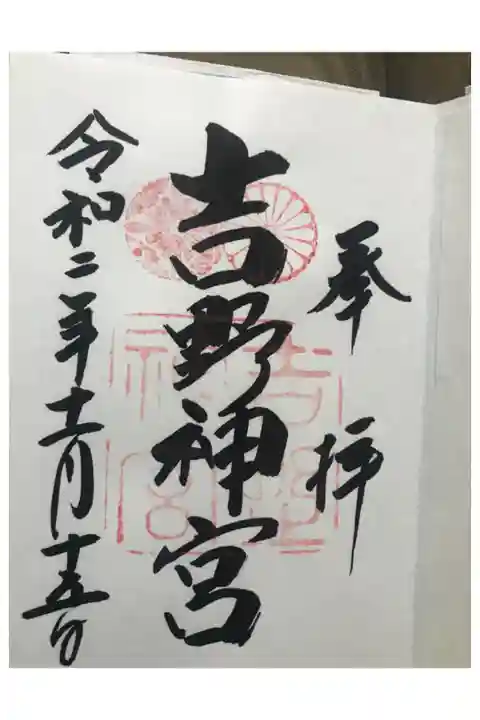 奉拝
吉野神宮
令和二年十一月十五日
吉野
神宮